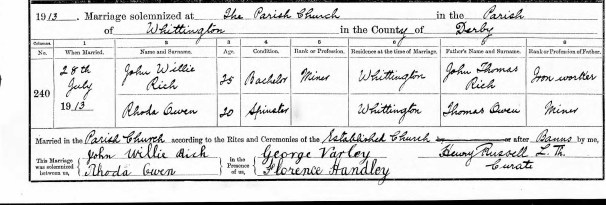 1913. Marriage solemnized at The Parish Church in the Parish
of Whittington in the County of Derby
Columns. 1 2 3 4 5 6 7 8
No. When Married. Name and Surname. Age. Condition. Rank or Profession. Residence at the time of Marriage. Father's Name and Surname. Rank or Profession of Father.
240 28th July 1913 John Willie Rich 25 Bachelor Miner Whittington John Thomas Rich Iron worker
Rhoda Owen 20 Spinster Whittington Thomas Owen Miner
Married in the Parish Church according to the Rites and Ceremonies of the Established Church or after Banns by me,
This Marriage was solemnized between us, John Willie Rich In the Presence of us, George Varley Henry Russell L. Th.
Rhoda Owen Florence Handley Curate